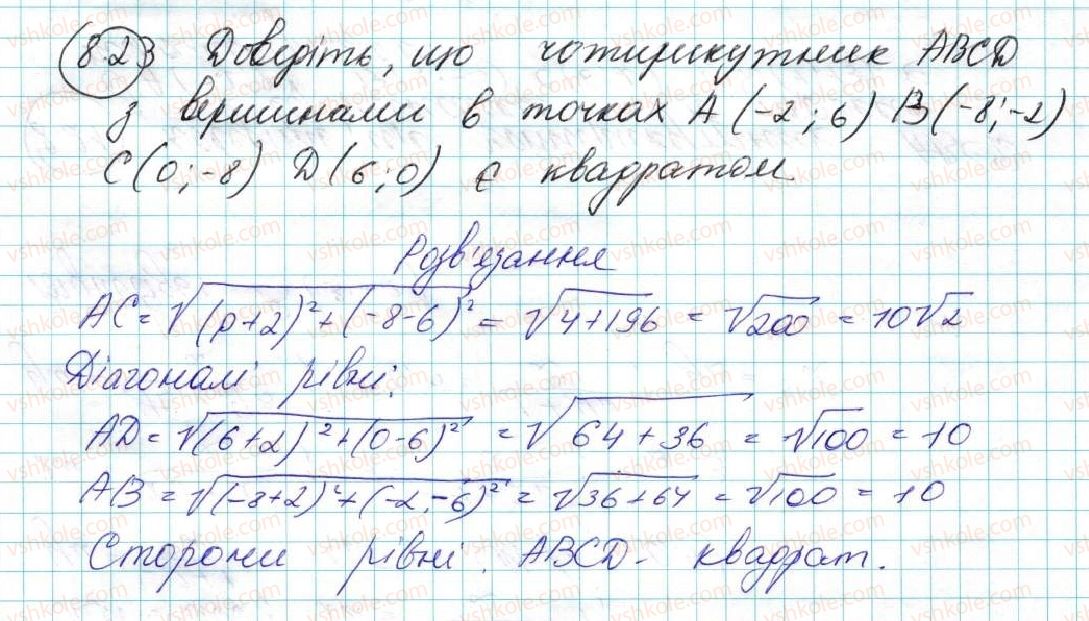 (82) Доведіть, що чотирикутник ABCD
з вершинами в точках A (-2; 6) B (-8; -2)
C (0; -8) D (6; 0) є квадратом.
Розв'язання
AC = √((0+2)² + (-8-6)²) = √(4+196) = √200 = 10√2
Діагоналі рівні.
AD = √((6+2)² + (0-6)²) = √(64+36) = √100 = 10
AB = √((-8+2)² + (-2-6)²) = √(36+64) = √100 = 10
Сторони рівні. ABCD - квадрат.